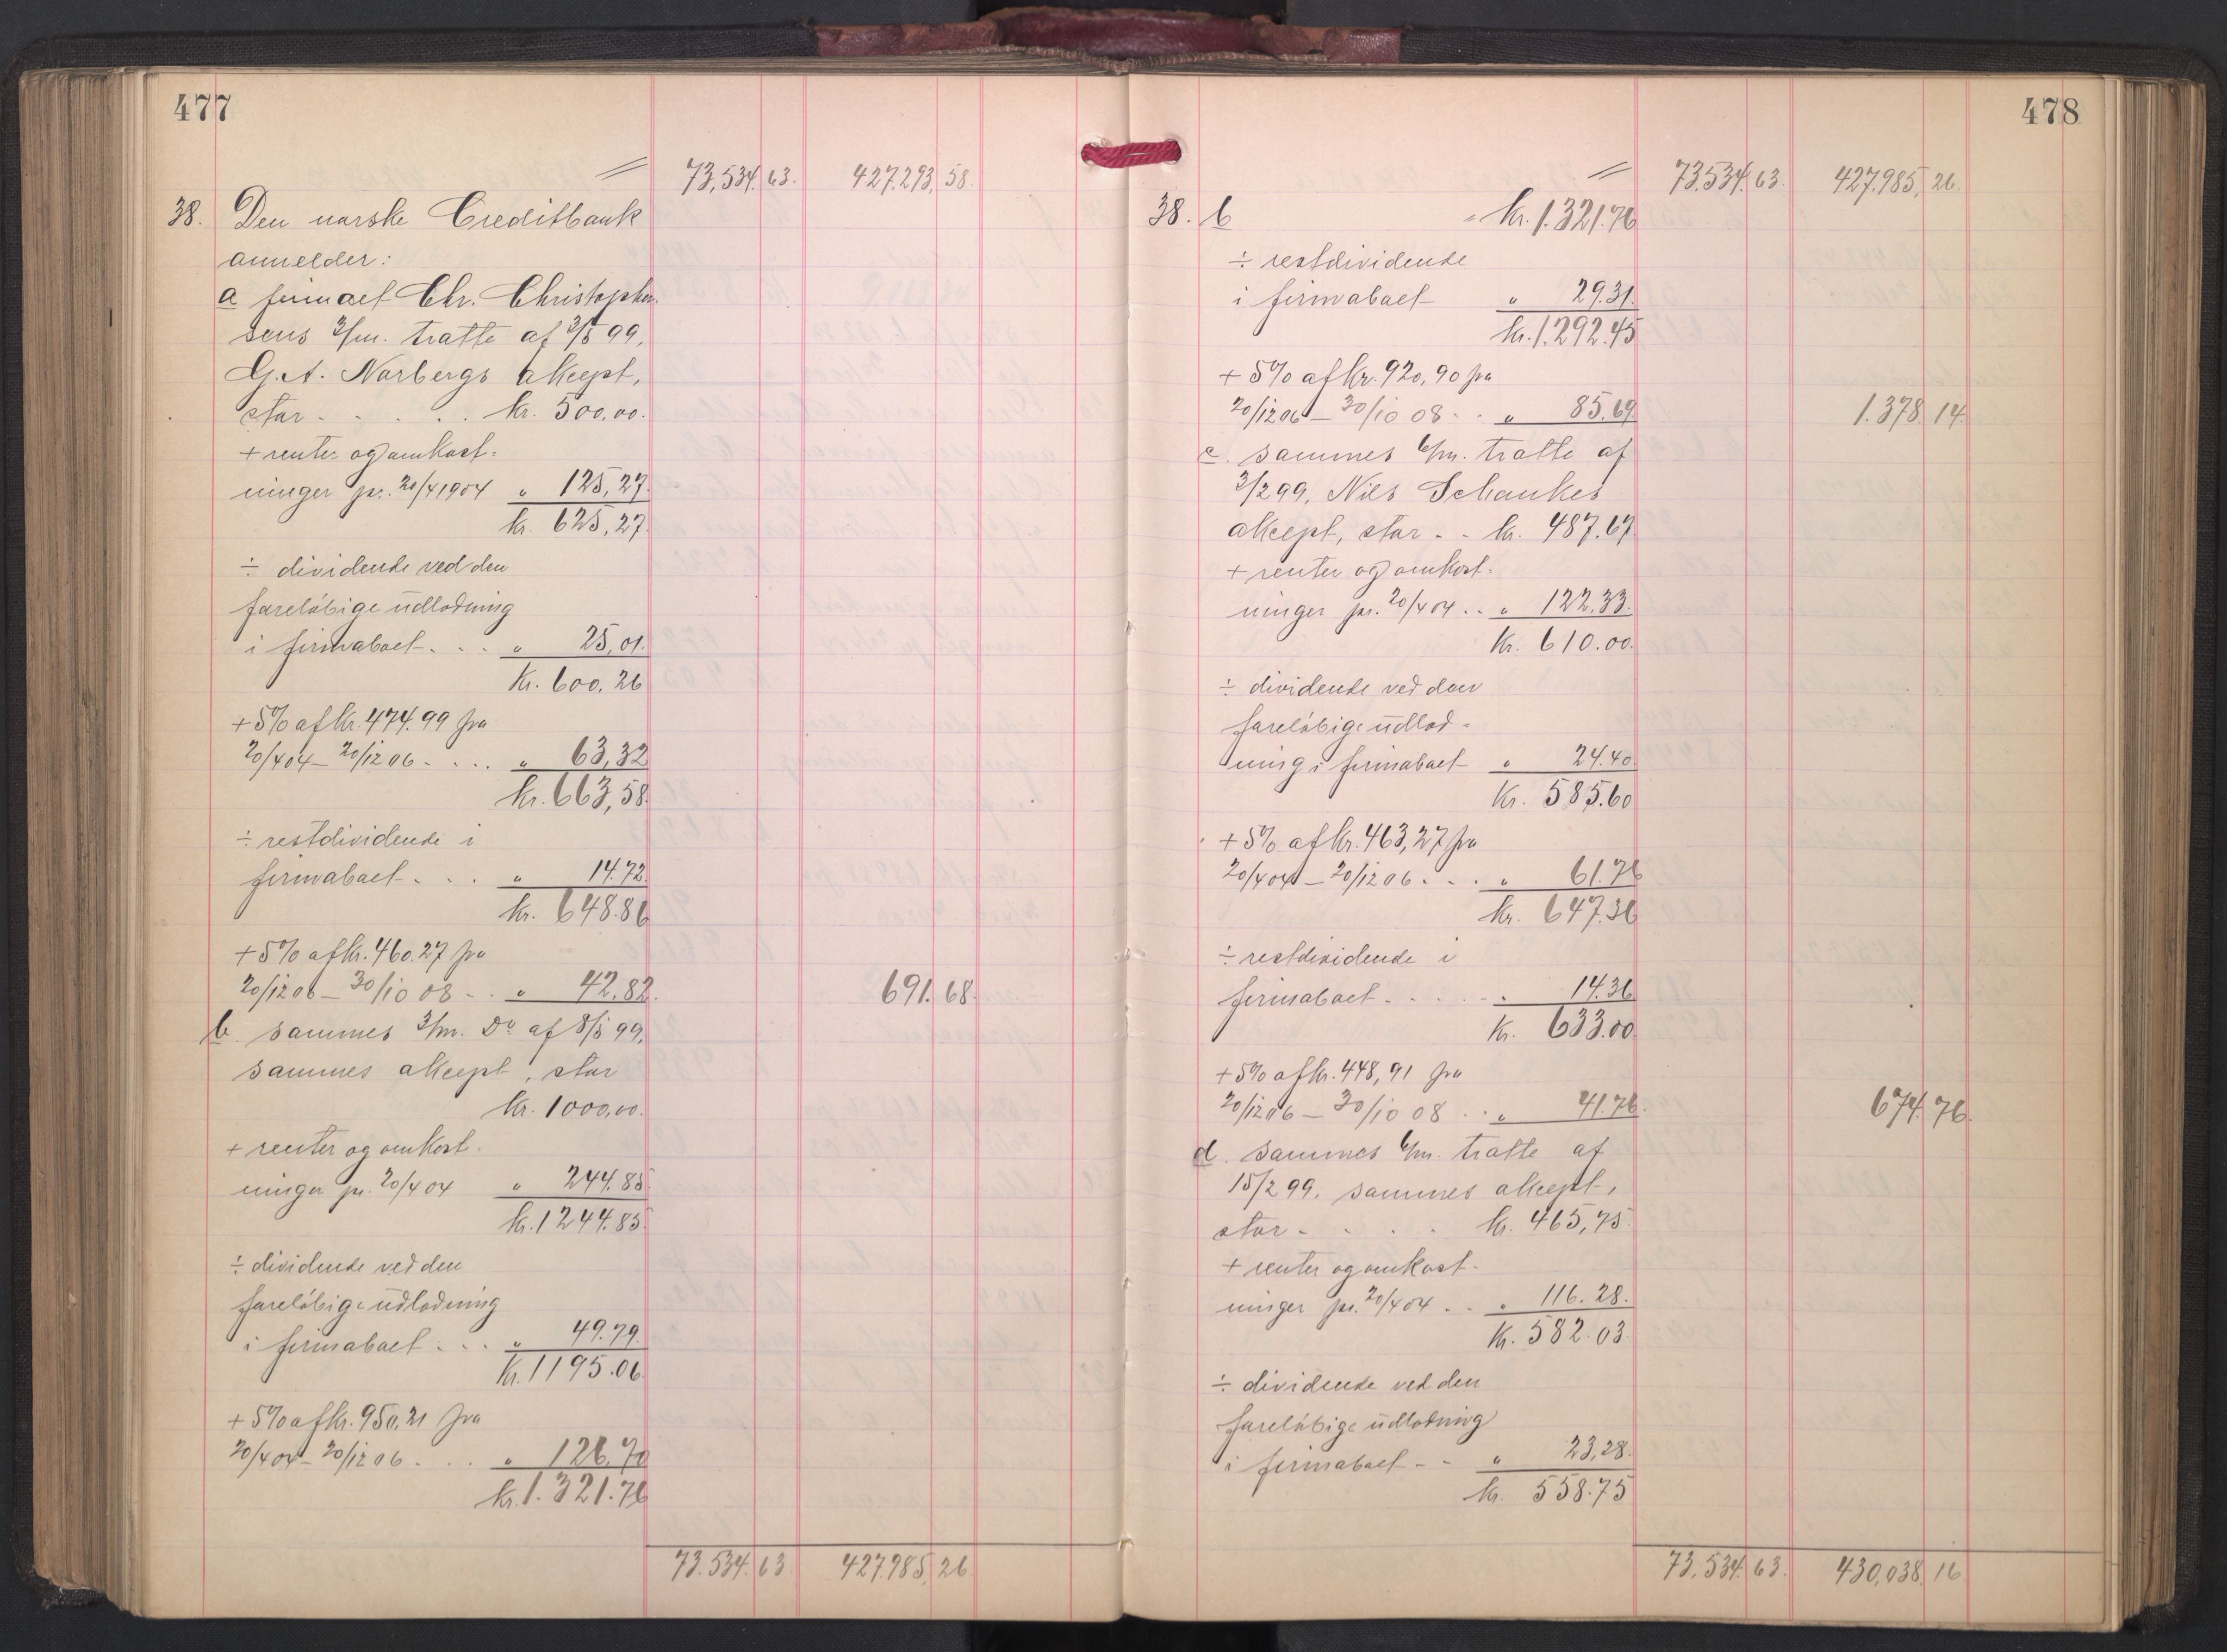 477
〃 73,534.63. 427.293,58.
38. Den norske Creditbank
anmelder:
a firmaet Chr. Christophersens
3/m. tratte af 3/5 99,
G.A. Norbergs akcept,
stor - - - - kr. 500,00.
+ renter og omkost-
ninger pr. 20/4 1904 〃 125,27.
kr. 625,27.
÷ dividende ved den
foreløbige udlodning
i firmaboet - - - 〃 25,01.
Kr. 600,26
+ 5% af kr. 474.99 fra
20/4 04 – 20/12 06 - - - 〃 63,32
kr. 663,58.
÷ restdividende i
firmaboet - - - 〃 14.72.
kr. 648.86
+ 5% af kr. 460.27 fra
20/12 06 – 30/10 08 - - 〃 42,82. 691.68.
b. sammes 3/m. Do af 8/5 99,
sammes akcept, stor
kr. 1000,00.
+ renter og omkost-
ninger pr. 20/4 04 〃 244.85
kr. 1244.85.
÷ dividende ved den
foreløbige udlodning
i firmaboet - - - 〃 49.79.
Kr. 1195.06
+ 5% af kr. 950,21 fra
20/4 04 – 20/12 06 - - - 〃 126,70
kr. 1.321.76
73.534.63 427.985,26
478
〃 73.534.63. 427.985,26.
38. b 〃 kr. 1.321.76
÷ restdividende
i firmaboet 〃 29.31.
kr. 1.292.45
+ 5% af kr. 920,90 fra
20/12 06 – 30/10 08 - - 〃 85.69 1.378.14.
c. sammes 6/m. tratte af
3/2 99, Nils Schankes
akcept, stor - - kr. 487.67
+ renter og omkost-
ninger pr. 20/4 04 - - 〃 122.33.
Kr. 610.00.
÷ dividende ved den
foreløbige udlod-
ning i firmaboet 〃 24.40.
Kr. 585.60
+ 5% af kr. 463,27 fra
20/4 04 – 20/12 06 - - - 〃 61.76
Kr. 647.36
÷ restdividende i
firmaboet - - - - - 〃 14.36
Kr. 633.00.
+ 5% af kr. 448,91 fra
20/12 06 – 30/10 08 - - 〃 41.76. 674.76.
d. sammes 6/m. tratte af
15/2 99, sammes akcept,
stor - - - - kr. 465,75.
+ renter og omkost-
ninger pr. 20/4 04 - - 〃 116.28.
Kr. 582.03.
÷ dividende ved den
foreløbige udlodning
i firmaboet - - 〃 23,28.
kr. 558.75
73,534.63. 430,038.16